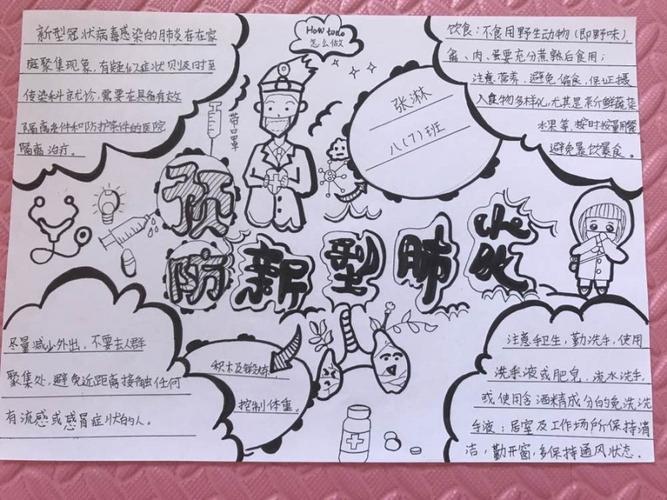 新型冠状病毒感染的肺炎存在家
庭聚集现象,有疑似症状则及时至
传染科就诊,需要在具备有效
隔离条件和防护条件的医院
隔离治疗。
How to do
怎么做
戴口罩
张淋
八(7)班
饮食:不食用野生动物(即野味),
禽、肉、蛋要充分煮熟后食用;
注意营养,避免偏食,保证摄
入食物多样化,尤其是新鲜蔬菜
水果等,按时按量用餐
避免暴饮暴食。
预
防新型肺炎
尽量减少外出,不要去人群
聚集处,避免近距离接触任何
有流感或感冒症状的人。
积木及锻炼,
控制体重。
注意手卫生,勤洗手,使用
洗手液或肥皂,流水洗手,
或使用含酒精成分的免洗洗
手液;居室及工作场所保持清
洁,勤开窗,多保持通风状态。